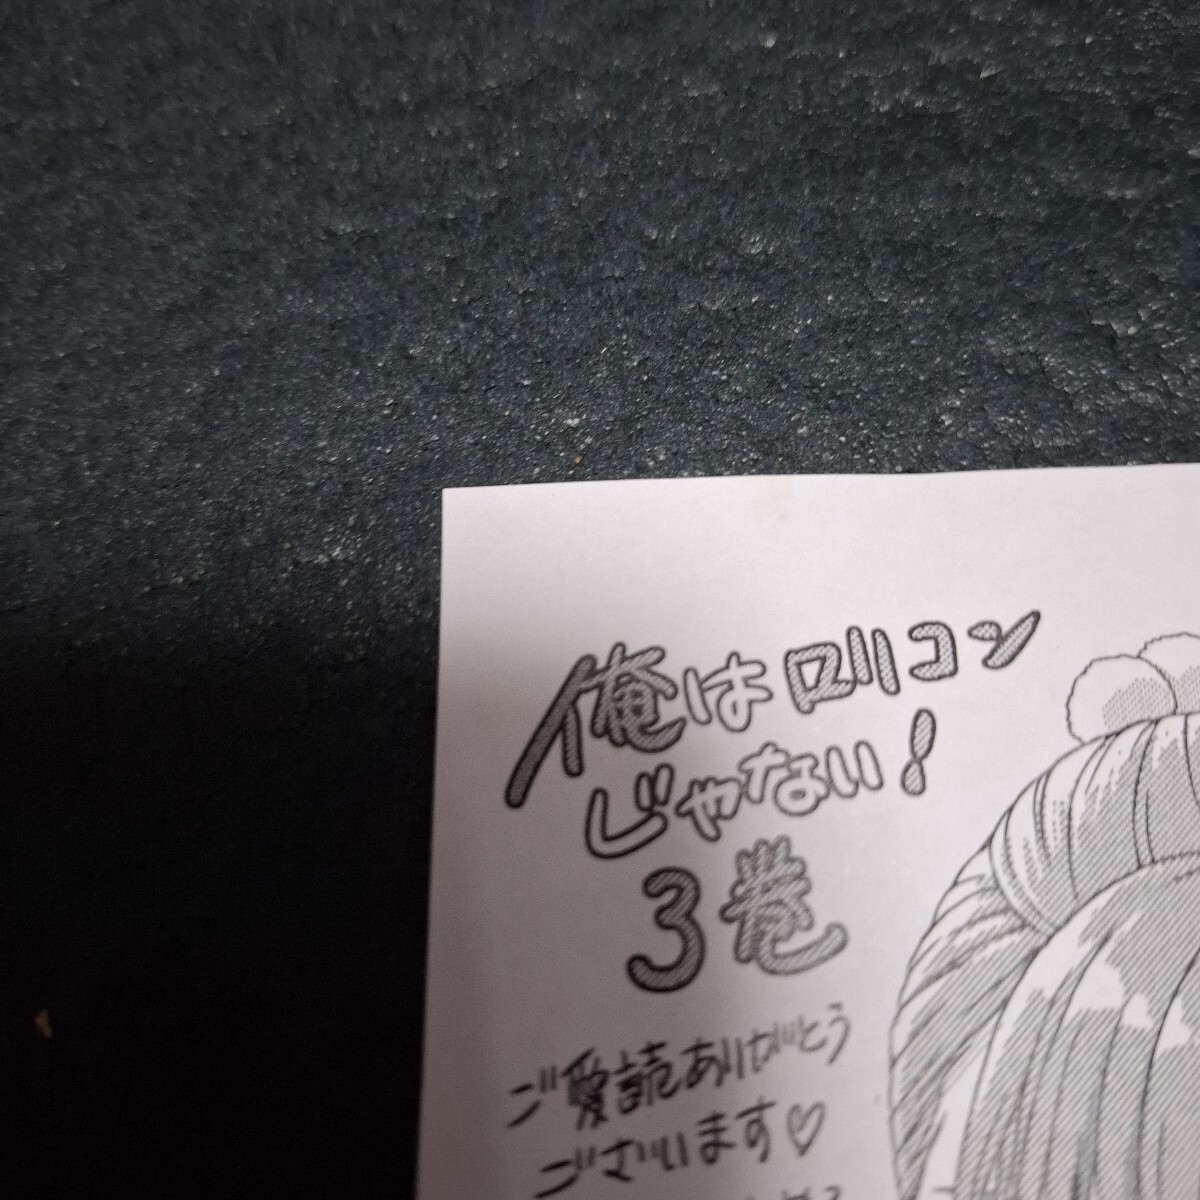 俺はロリコン
じゃない!
3巻
ご愛読ありがとう
ございます♡